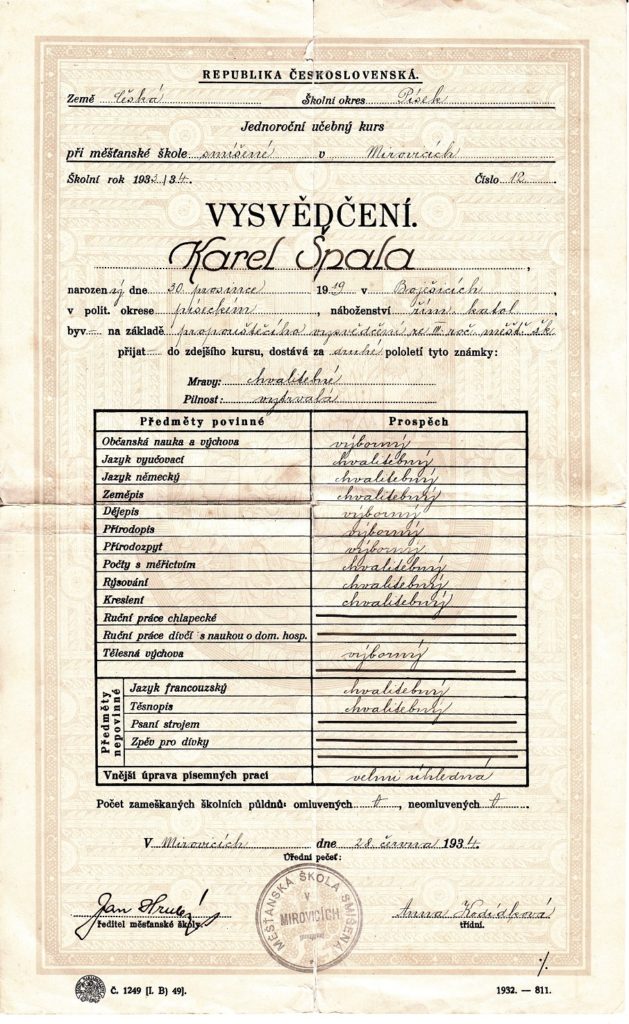 REPUBLIKA ČESKOSLOVENSKÁ.
Země Česká Školní okres Písek
Jednoroční učebný kurs
při měšťanské škole smíšené v Mirovicích
Školní rok 1933/34. Číslo 12
VYSVĚDČENÍ.
Karel Špala,
narozený dne 30. prosince 1919 v Boješicích,
v polit. okrese píseckém, náboženství řím. katol
byv na základě propouštěcího vysvědčení ze III. roč. měšť. šk
přijat do zdejšího kursu, dostává za druhé pololetí tyto známky:
Mravy: chvalitebné
Pilnost: vytrvalá
Předměty povinné Prospěch
Občanská nauka a výchova výborný
Jazyk vyučovací chvalitebný
Jazyk německý chvalitebný
Zeměpis chvalitebný
Dějepis výborný
Přírodopis výborný
Přírodozpyt výborný
Počty s měřictvím chvalitebný
Rýsování chvalitebný
Kreslení chvalitebný
Ruční práce chlapecké
Ruční práce dívčí s naukou o dom. hosp.
Tělesná výchova výborný
Předměty nepovinné
Jazyk francouzský chvalitebný
Těsnopis chvalitebný
Psaní strojem
Zpěv pro dívky
Vnější úprava písemných prací velmi úhledná
Počet zameškaných školních půldnů: omluvených 0, neomluvených 0.
V Mirovicích dne 28. června 1934.
Úřední pečeť:
MĚŠŤANSKÁ ŠKOLA SMÍŠENÁ
V
MIROVICÍCH
Jan Hrubý Anna
ředitel měšťanské školy. třídní.
Č. 1249 [I. B) 49]. 1932. — 811.